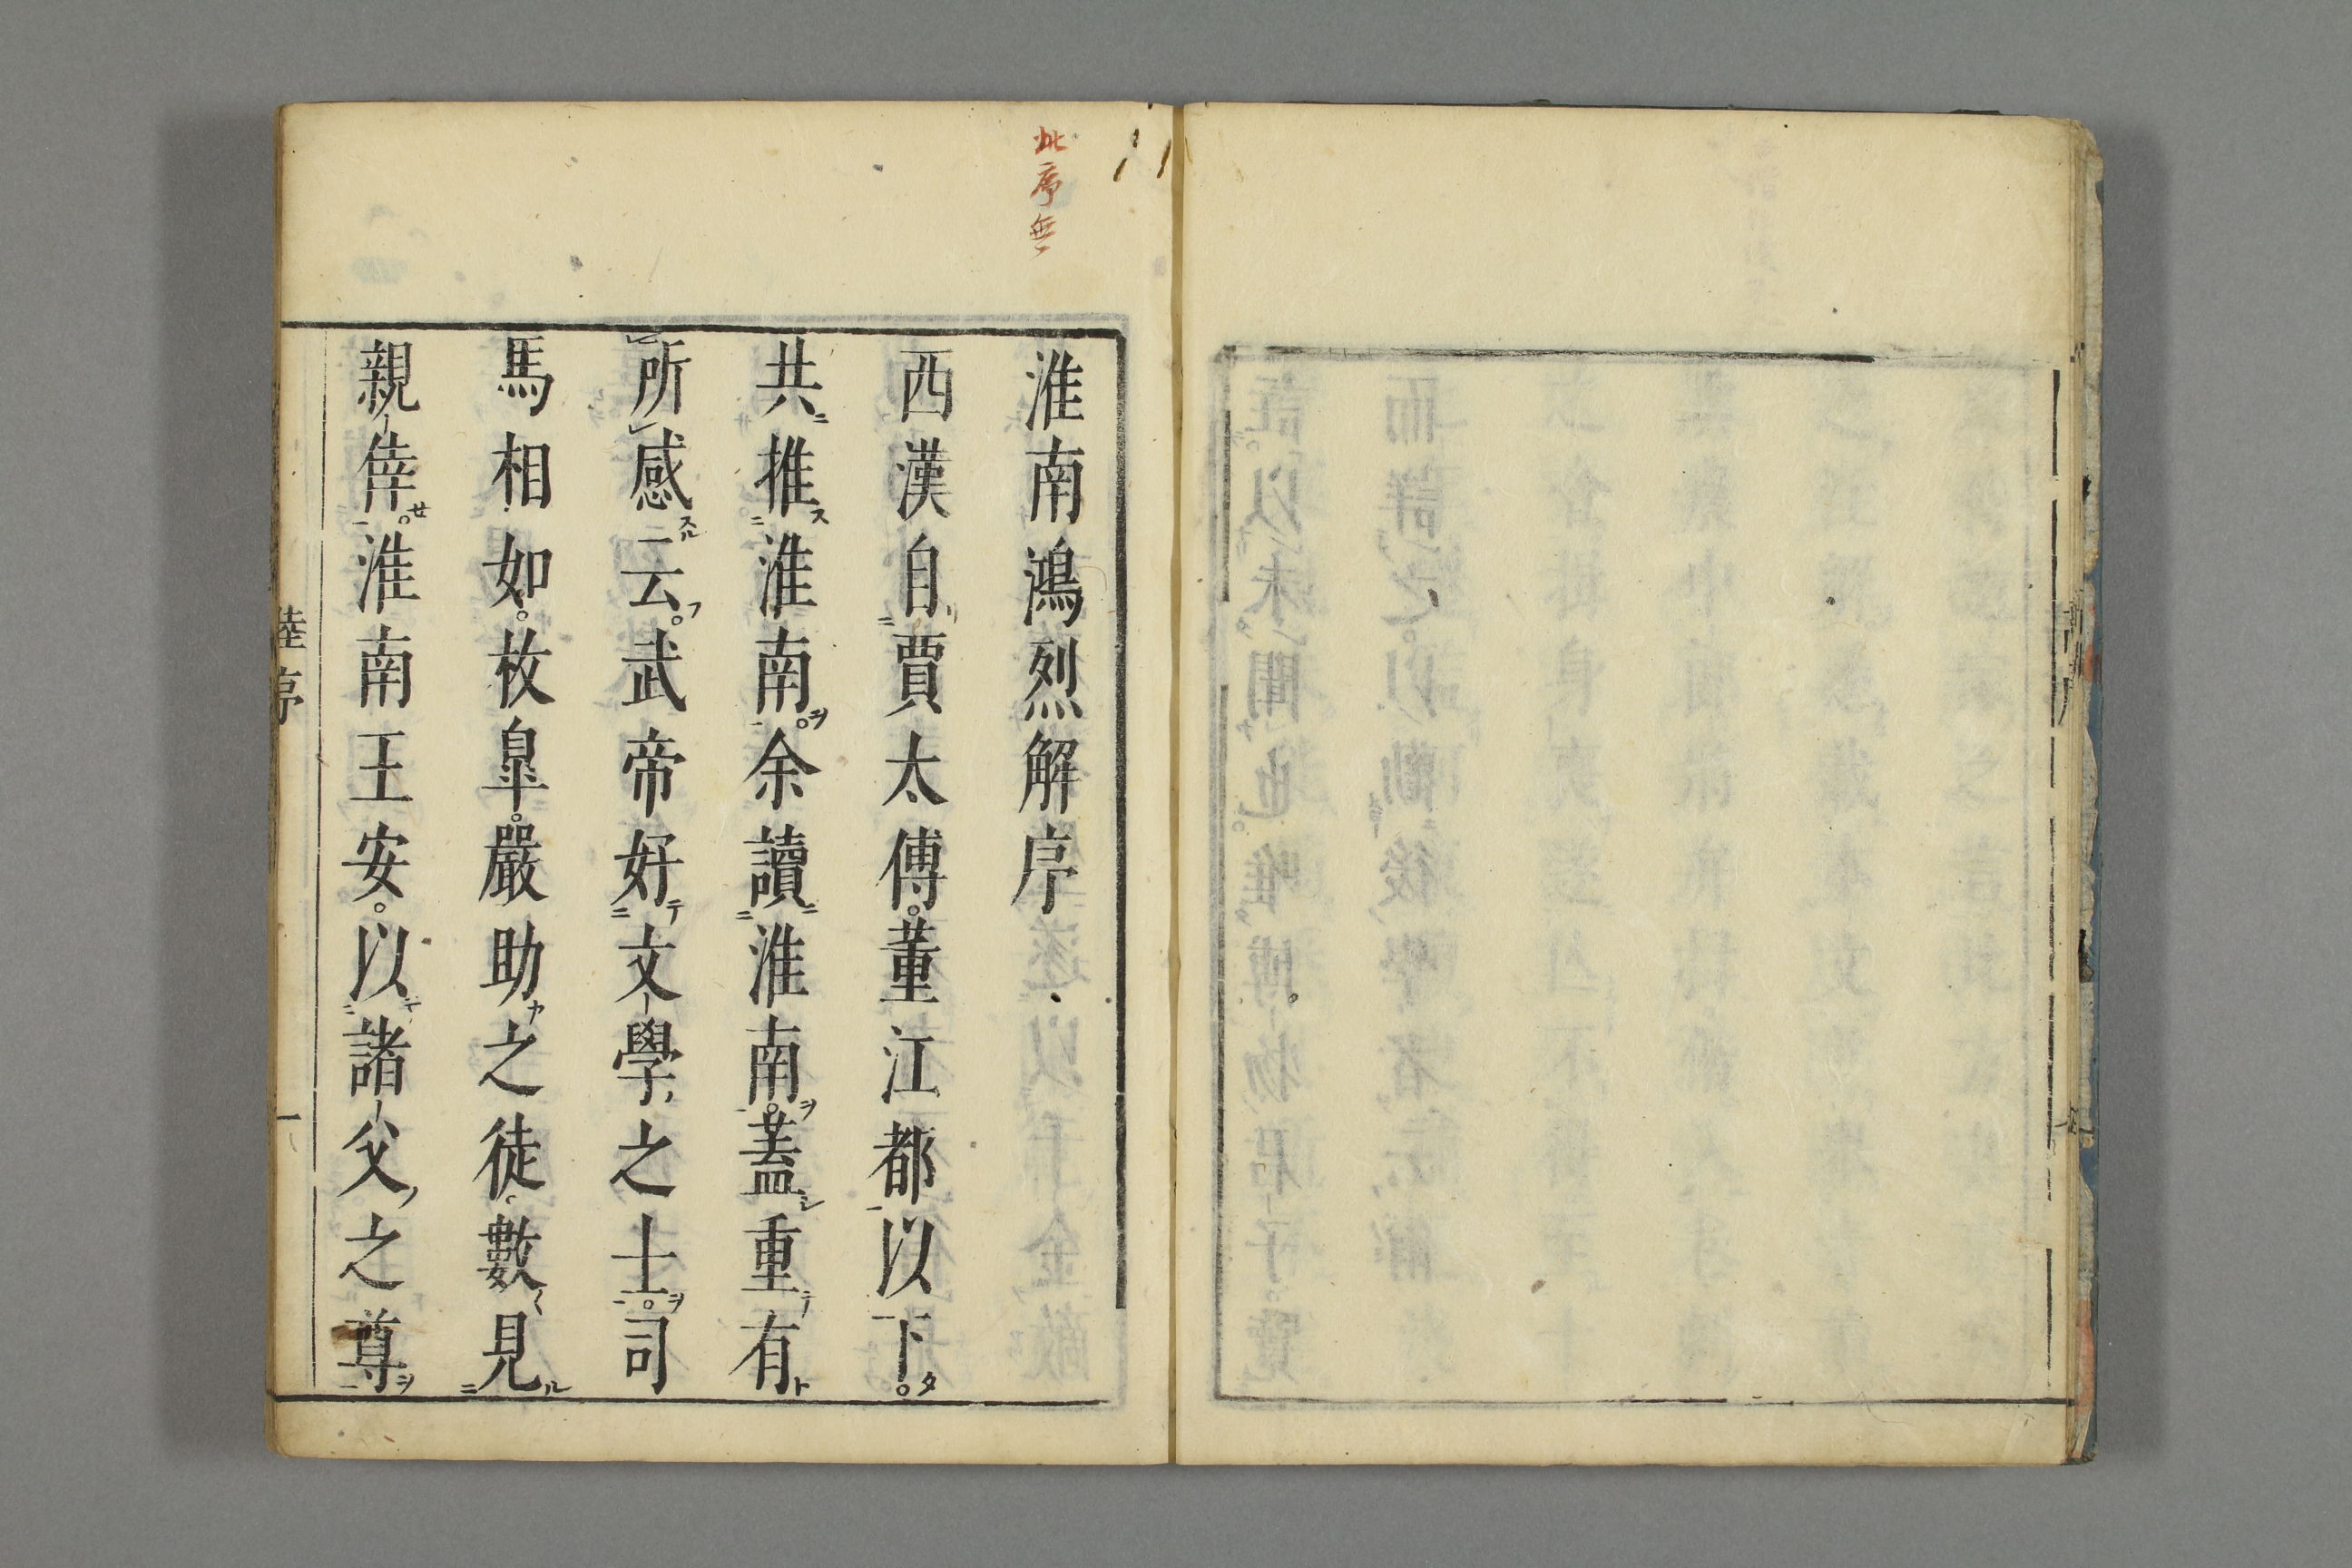 此序無
淮南鴻烈解序
西漢自賈太傅。董江都以下。
共推淮南。余讀淮南。蓋重有
所感云。武帝好文學之士。司
馬相如。枚皐。嚴助之徒數見
親倖。淮南王安。以諸父之尊
陸序
一